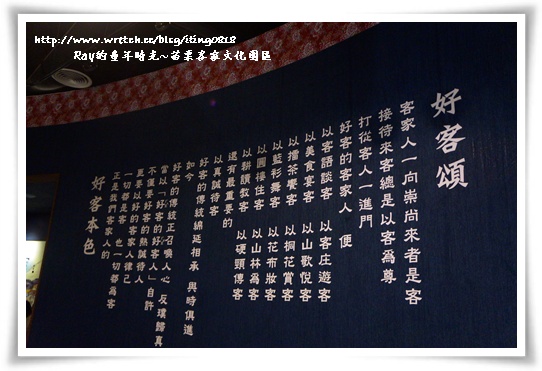 http://www.wretch.cc/blog/iting0818
Ray的童年時光~苗栗客家文化園區
好客頌
客家人一向崇尚來者是客
接待來客總是以客為尊
打從客人一進門
好客的客家人 便
以客語談客 以客庄遊客
以美食宴客 以山歌悅客
以擂茶饗客 以桐花賞客
以藍衫舞客 以花布妝客
以圓樓住客 以山林為客
以耕讀教客 以硬頸傳客
還有最重要的
以真誠待客
好客的傳統綿延相承 與時俱進
如今
好客的傳統正召喚人心 反璞歸真
當以「好客的好客人」自許
不僅要好客的熱誠待人
更要以好的客家人律己
一切都是客 也一切都為客
正是我們客家人的
好客本色